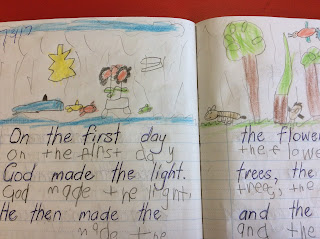 On the first day
on the first day
God made the light.
God made the light,
He then made the
made the
the flower
the flowe
trees, the
trees, the
and the
and the